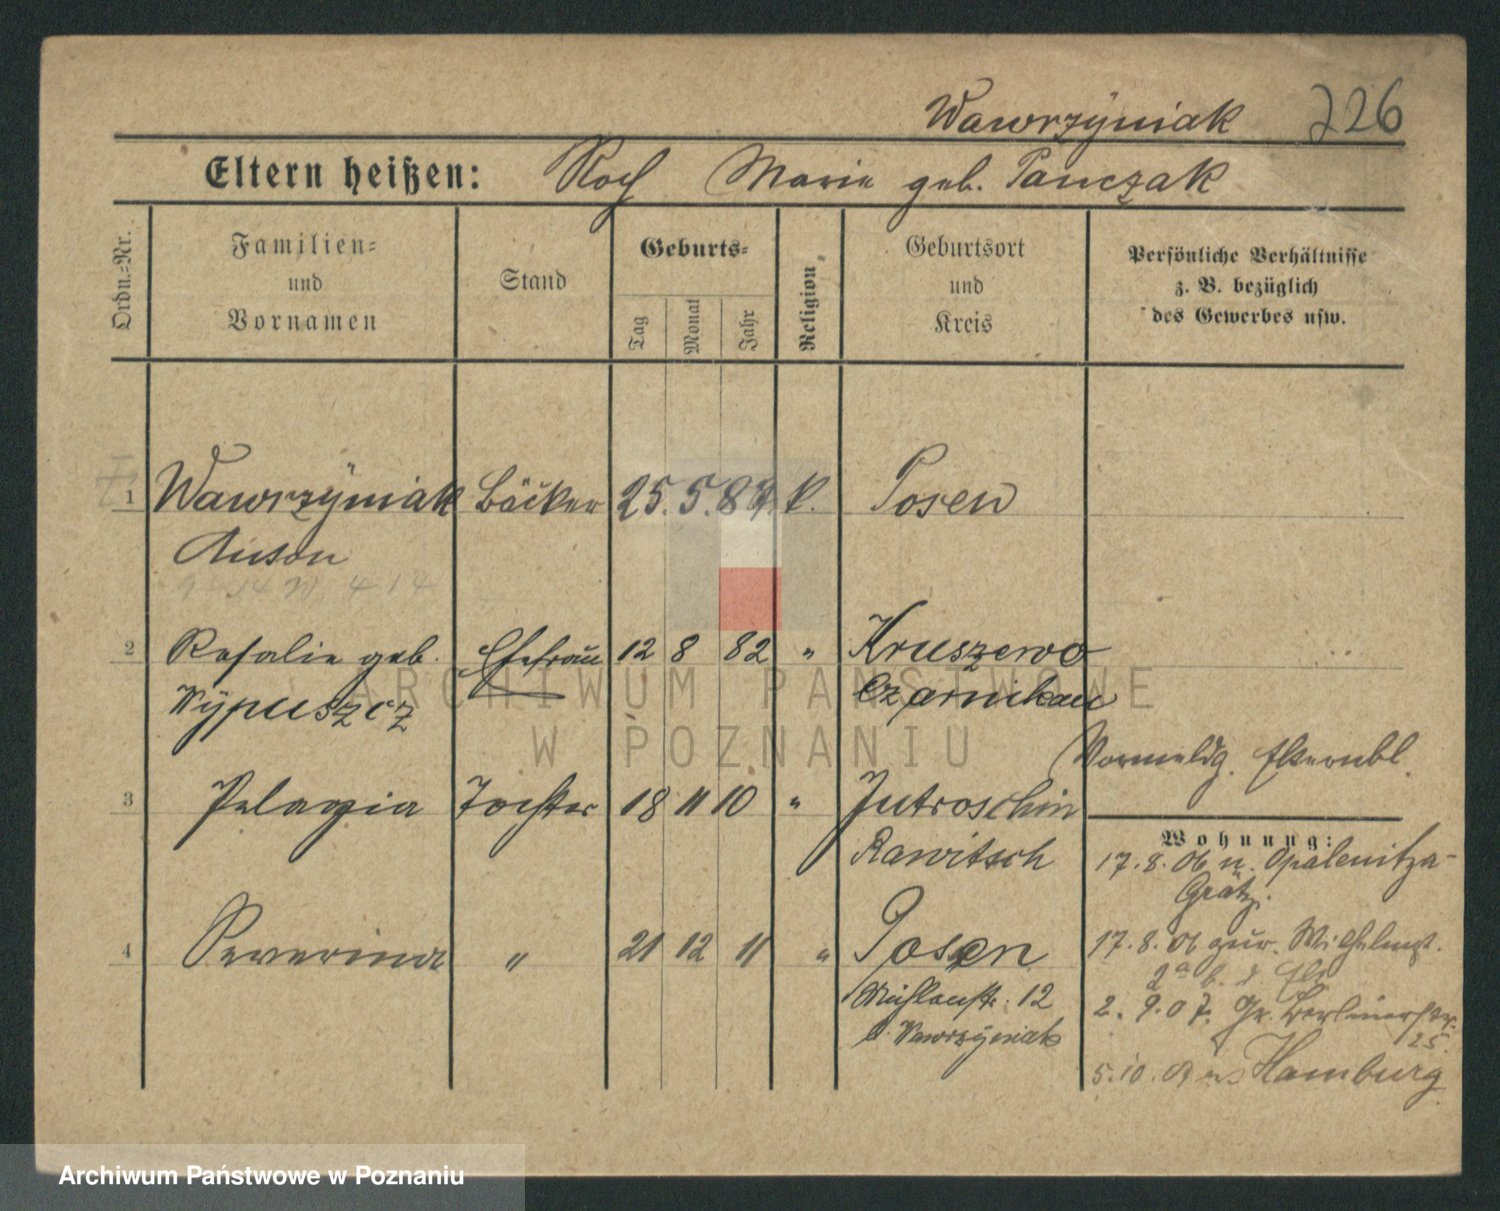 Wawrzyniak 226
Eltern heißen: Roch Marie geb. Panczak
Ordn.-Nr.
Familien-
und
Vornamen
Stand
Geburts-
Tag
Monat
Jahr
Religion
Geburtsort
und
Kreis
Persönliche Verhältnisse
z. B. bezüglich
des Gewerbes usw.
1 Wawrzyniak Bäcker 25. 5. 82. k. Posen
Anton
2 Rosalie geb. Ehefrau 12 8 82 " Kruszewo
Wypuszcz Czarnikau
Vormeldg. Elternbl.
3 Pelagia Tochter 18 11 10 " Jutroschin
Rawitsch
Wohnung:
17.8.06 n. Opalenitza-
Grätz.
4 Severina " 21 12 11 " Posen
17.8.06 zur. Wilhelmst.
Mühlenstr. 12
2a b. d.
b. Wawrzyniak
2. 9. 07. Gr. Berlinerstr.
25.
5.10. aus Hamburg
ARCHIWUM PAŃSTWOWE
W POZNANIU
Archiwum Państwowe w Poznaniu